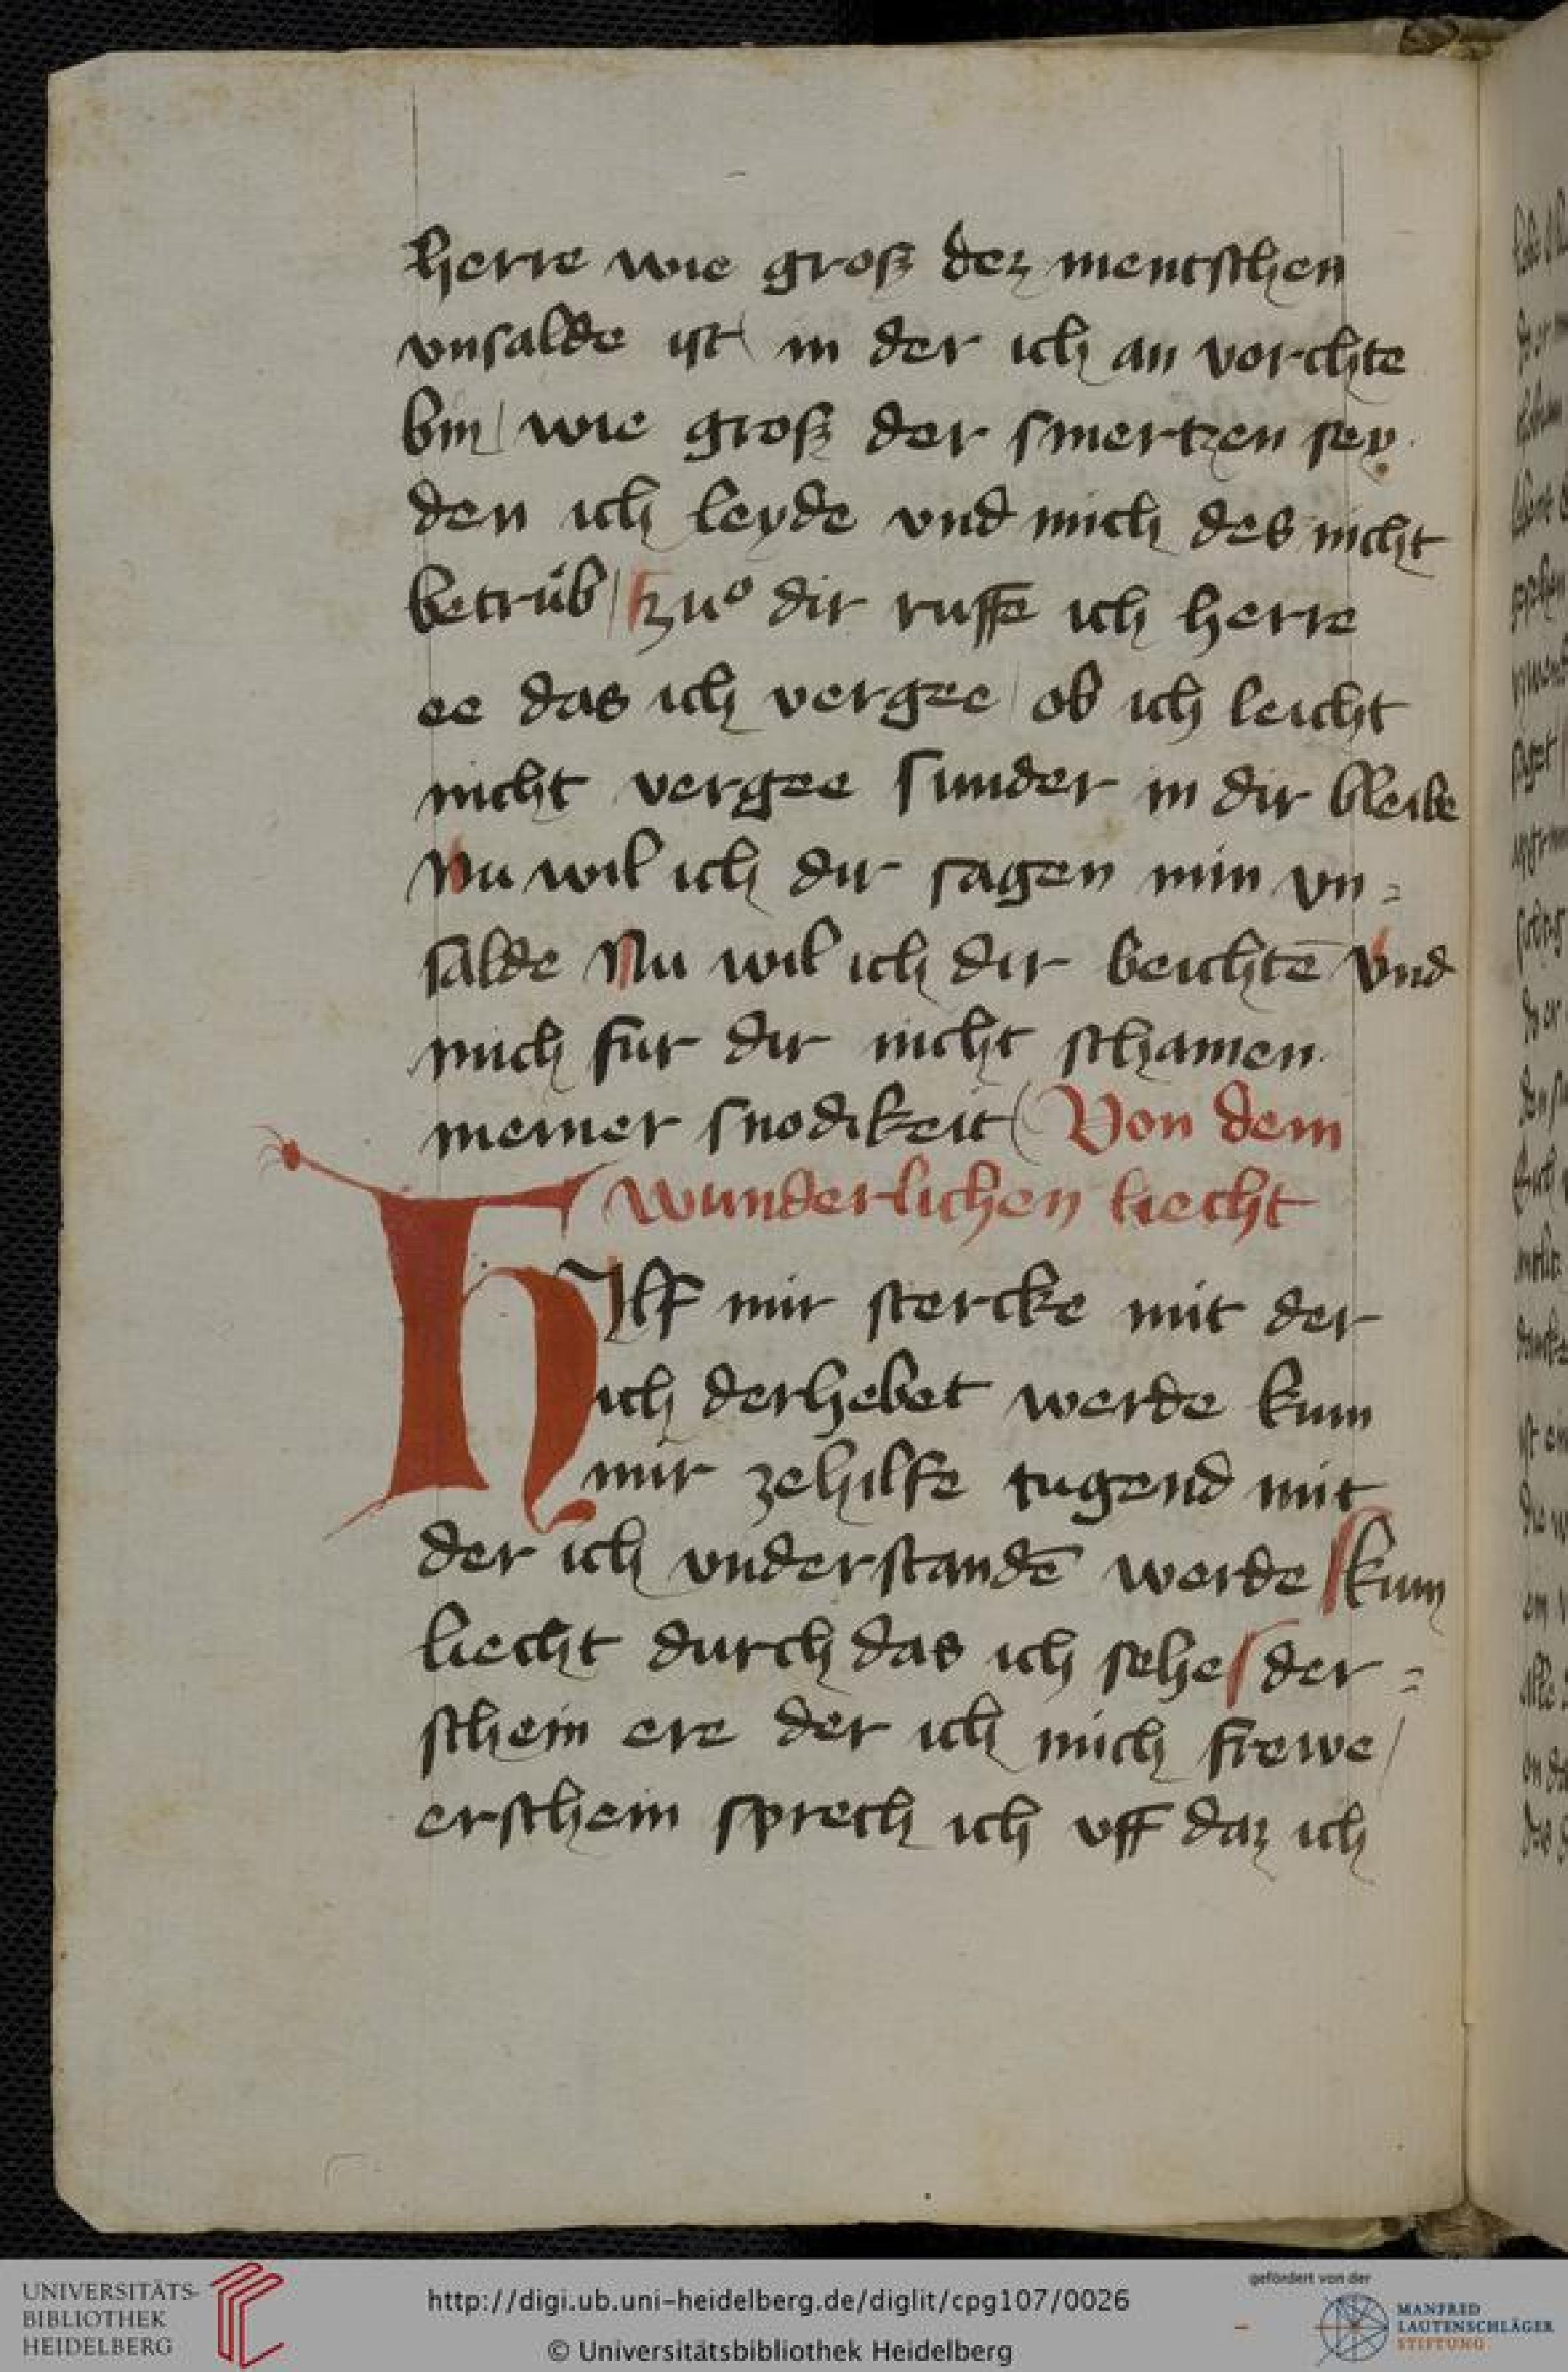 herre wie groß dez mentschen
vnsalde ist in der ich an vorchte
bin / wie groß der smertzen sey
den ich leyde vnd mich des nicht
betrůb / zuͦ dir ruffe ich herre
ee das ich vergee / ob ich leicht
nicht vergee sunder in dir bleibe
Nu wil ich dir sagen min vn⸗
salde Nu wil ich dir beichtē vnd
mich fur dir nicht schamen
meiner snodikeit Von dem
wunderlichen liecht
HIlf mir stercke mit der
ich derhebet werde kum
mir zehilfe tugend mit
der ich vnderstandē werde kum
liecht durch das ich sehe der⸗
schein ere der ich mich frewe /
erschein sprech ich vff daz ich
UNIVERSITÄTS-
BIBLIOTHEK
HEIDELBERG
http://digi.ub.uni-heidelberg.de/diglit/cpg107/0026
© Universitätsbibliothek Heidelberg
gefördert von der
MANFRED
LAUTENSCHLÄGER
STIFTUNG